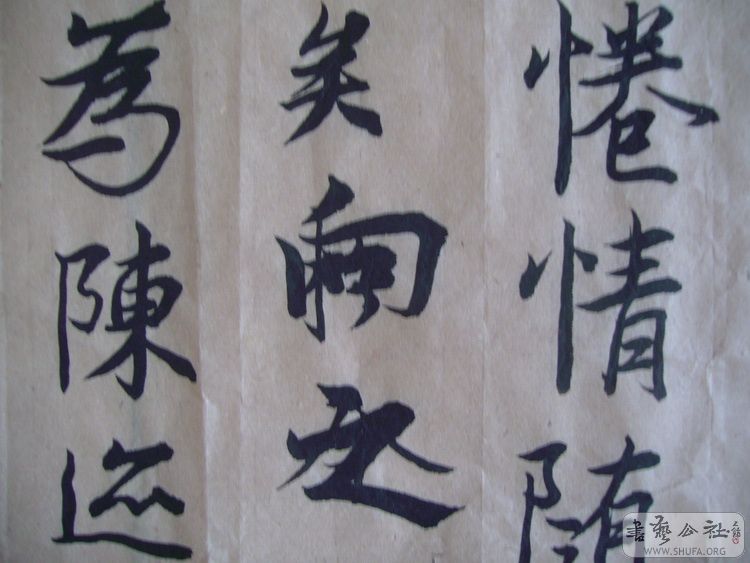 惓情随
矣向之
為陳迹
書藝公社
WWW.SHUFA.ORG